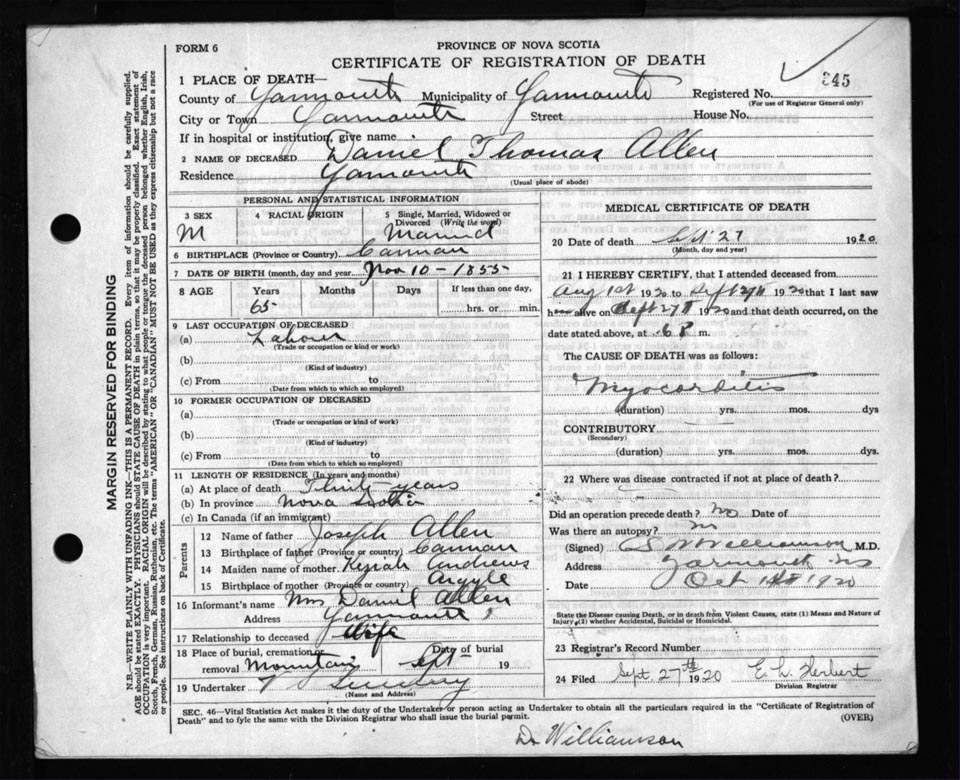 FORM 6
PROVINCE OF NOVA SCOTIA
CERTIFICATE OF REGISTRATION OF DEATH
345
1 PLACE OF DEATH—
County of Yarmouth Municipality of Yarmouth Registered No.
(For use of Registrar General only)
City or Town Yarmouth Street House No.
If in hospital or institution, give name
2 NAME OF DECEASED Daniel Thomas Allen
Residence Yarmouth
(Usual place of abode)
PERSONAL AND STATISTICAL INFORMATION
3 SEX 4 RACIAL ORIGIN 5 Single, Married, Widowed or Divorced (Write the word)
M Married
6 BIRTHPLACE (Province or Country) Carman
7 DATE OF BIRTH (month, day and year) Nov 10 - 1855
8 AGE Years Months Days If less than one day,
65 hrs. or min.
9 LAST OCCUPATION OF DECEASED
(a) Labour
(Trade or occupation or kind or work)
(b)
(Kind of industry)
(c) From to
(Date from which to which so employed)
10 FORMER OCCUPATION OF DECEASED
(a)
(Trade or occupation or kind of work)
(b)
(Kind of industry)
(c) From to
(Date from which to which so employed)
11 LENGTH OF RESIDENCE (In years and months)
(a) At place of death years
(b) In province Nova Scotia
(c) In Canada (if an immigrant)
Parents
12 Name of father Joseph Allen
13 Birthplace of father (Province or country) Carman
14 Maiden name of mother Keziah Andrews
15 Birthplace of mother (Province or country) Argyle
16 Informant's name Mrs Daniel Allen
Address Yarmouth
17 Relationship to deceased Wife
18 Place of burial, cremation, or removal Mountain Date of burial Sept 19
19 Undertaker
(Name and Address)
MEDICAL CERTIFICATE OF DEATH
20 Date of death Sept 27 1920
(Month, day and year)
21 I HEREBY CERTIFY, that I attended deceased from
Aug 1st 1920 to Sept 27th 1920 that I last saw
h alive on Sept 27th 1920 and that death occurred, on the
date stated above, at 6 P m.
The CAUSE OF DEATH was as follows:
Myocarditis
(duration) yrs. mos. dys
CONTRIBUTORY
(Secondary)
(duration) yrs. mos. dys
22 Where was disease contracted if not at place of death?
Did an operation precede death? No Date of
Was there an autopsy? no
(Signed) Williamson M.D.
Address Yarmouth NS
Date Oct 1920
State the Disease causing Death, or in death from Violent Causes, state (1) Means and Nature of
Injury, (2) whether Accidental, Suicidal or Homicidal.
23 Registrar's Record Number
24 Filed Sept 27th 1920 E. L. Herbert
Division Registrar
SEC. 46—Vital Statistics Act makes it the duty of the Undertaker or person acting as Undertaker to obtain all the particulars required in the "Certificate of Registration of
Death" and to fyle the same with the Division Registrar who shall issue the burial permit.
(OVER)
Dr Williamson
MARGIN RESERVED FOR BINDING
N.B.—WRITE PLAINLY WITH UNFADING INK—THIS IS A PERMANENT RECORD. Every item of information should be carefully supplied.
AGE should be stated EXACTLY. PHYSICIANS should STATE CAUSE OF DEATH in plain terms, so that it may be properly classified. Exact statement of
OCCUPATION is very important. RACIAL ORIGIN will be described by stating to what people or tongue the deceased person belonged whether English, Irish,
Scotch, French, German, Russian, Ruthenian, etc. The terms "AMERICAN" OR "CANADIAN" MUST NOT BE USED as they express citizenship but not a race
or people. See instructions on back of Certificate.